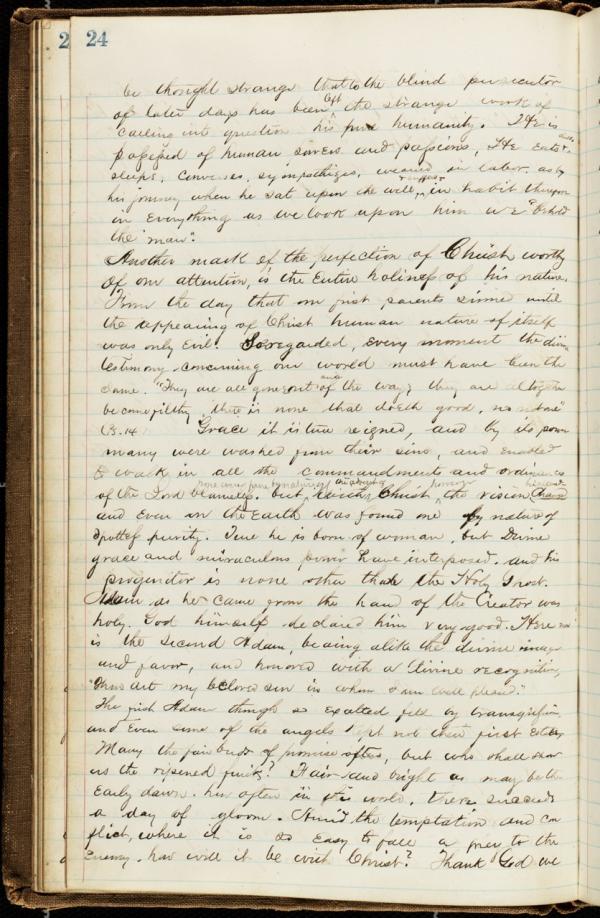 2 24
be thought strange that to the blind persecutor
of later days has been left the strange work of
calling into question his pure humanity. He is
possessed of human sinews and passions, He eats &
sleeps, converses, sympathizes, wearied in labor, as by
his journey when he sat upon the well, in habit
in everything as we look upon him we "Behold
the man".
Another mark of the perfection of Christ worthy
of our attention, is the entire holiness of his nature.
From the day that our first parents sinned until
the appearing of Christ human nature of itself
was only evil. So regarded, every moment the divine
testimony concerning our world must have been the
same. "They are all gone out of the way; they are altogether
become filthy, there is none that doeth good, no not one"
Ps. 14 Grace it is true reigned, and by its power
many were washed from their sins, and enabled
to walk in all the commandments and ordinances
of the Lord blameless. but Christ, the vision
and even in the Earth was found one by nature of
spotless purity. True he is born of woman, but Divine
grace and miraculous power have interposed. and his
progenitor is none other than the Holy Ghost.
Adam as he came from the hand of the Creator was
holy. God himself declared him very good. Here
is the second Adam, bearing alike the divine image
and favor, and honored with a divine recognition,
"Thou art my beloved son in whom I am well pleased."
The first Adam though so exalted fell by transgression,
and even some of the angels kept not their first estate
Many the fair buds of promise often, but who shall show
us the ripened fruit? Fair and bright as may be the
early dawn. how often in this world, there succeeds
a day of gloom. Amid the temptation and con
flict, where it is so easy to fall a prey to the
Enemy. how will it be with Christ? Thank God we